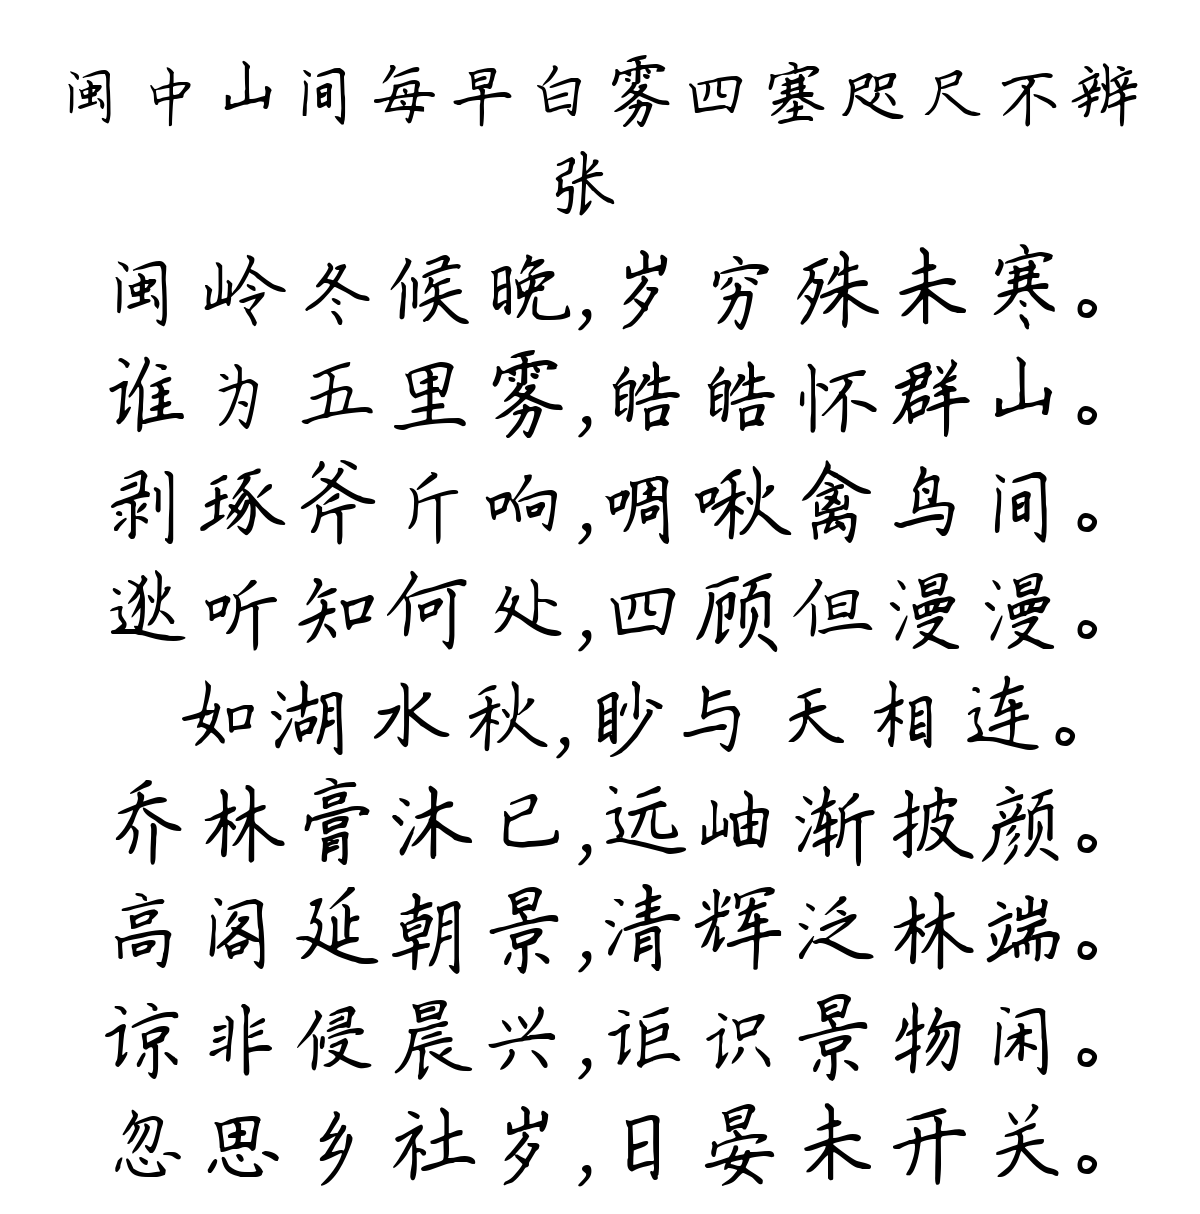 闽中山间每早白雾四塞咫尺不辨
张
闽岭冬候晚,岁穷殊未寒。
谁为五里雾,皓皓怀群山。
剥琢斧斤响,啁啾禽鸟间。
逖听知何处,四顾但漫漫。
如湖水秋,眇与天相连。
乔林膏沐已,远岫渐披颜。
高阁延朝景,清辉泛林端。
谅非侵晨兴,讵识景物闲。
忽思乡社岁,日晏未开关。